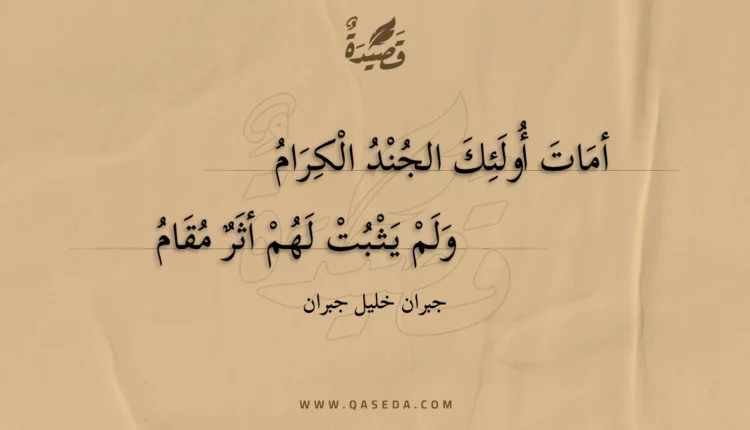 قَصِيْدَةٌ
أمَاتَ أُولَئِكَ الجُنْدُ الْكِرَامُ
وَلَمْ يَثْبُتْ لَهُمْ أثَرٌ مُقَامُ
جبران خليل جبران
WWW.QASEDA.COM